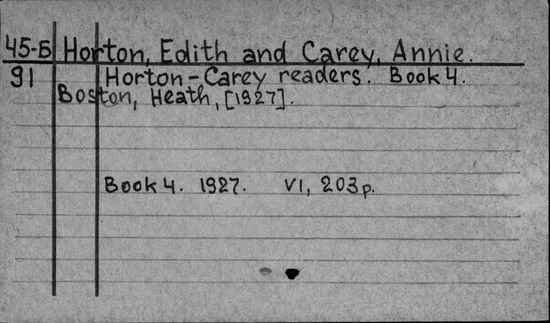 45-Б Horton, Edith and Carey, Annie.
91 Horton-Carey readers. Book 4.
Boston, Heath, [1927].
Book 4. 1927. VI, 203 p.